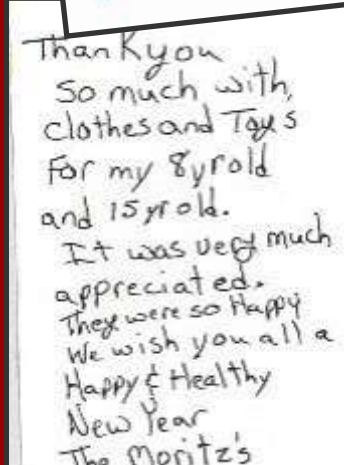 Thank you
So much with,
clothes and Toys
For my 8yrold
and 15 yr old.
It was very much
appreciated.
They were so Happy
We wish you all a
Happy & Healthy
New Year
The Moritz's